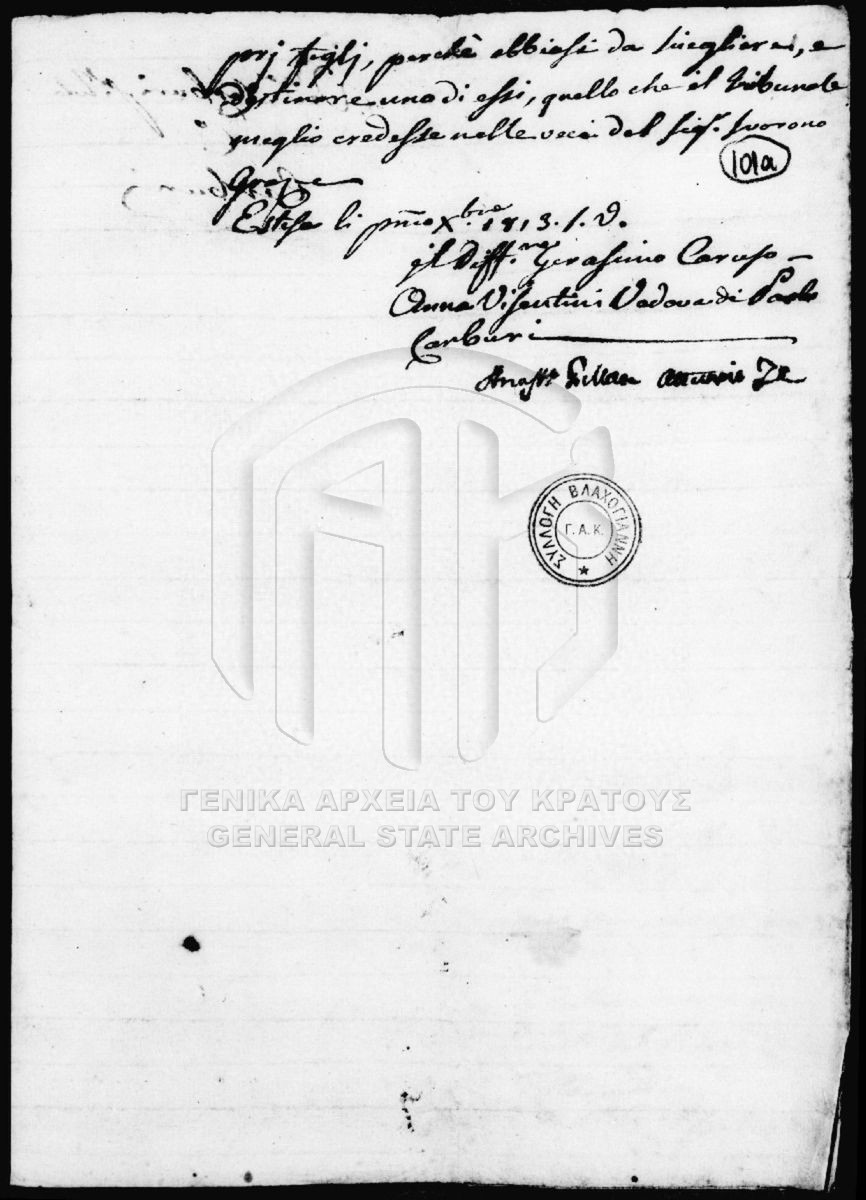 prj figlj, perchè abbiasi da sciegliere, e
destinare uno di essi, quello che il Tribunale
meglio credesse nelle veci del Sigr. Svorono
101a
Grazie
Estesa li pmo Xbre 1813. S. V.
il Diff.re Gerasimo Caruso
Anna Visentini Vedova di Paolo
Carburi
ΣΥΛΛΟΓΗ ΒΛΑΧΟΓΙΑΝΝΗ
Γ. Α. Κ.
ΓΕΝΙΚΑ ΑΡΧΕΙΑ ΤΟΥ ΚΡΑΤΟΥΣ
GENERAL STATE ARCHIVES